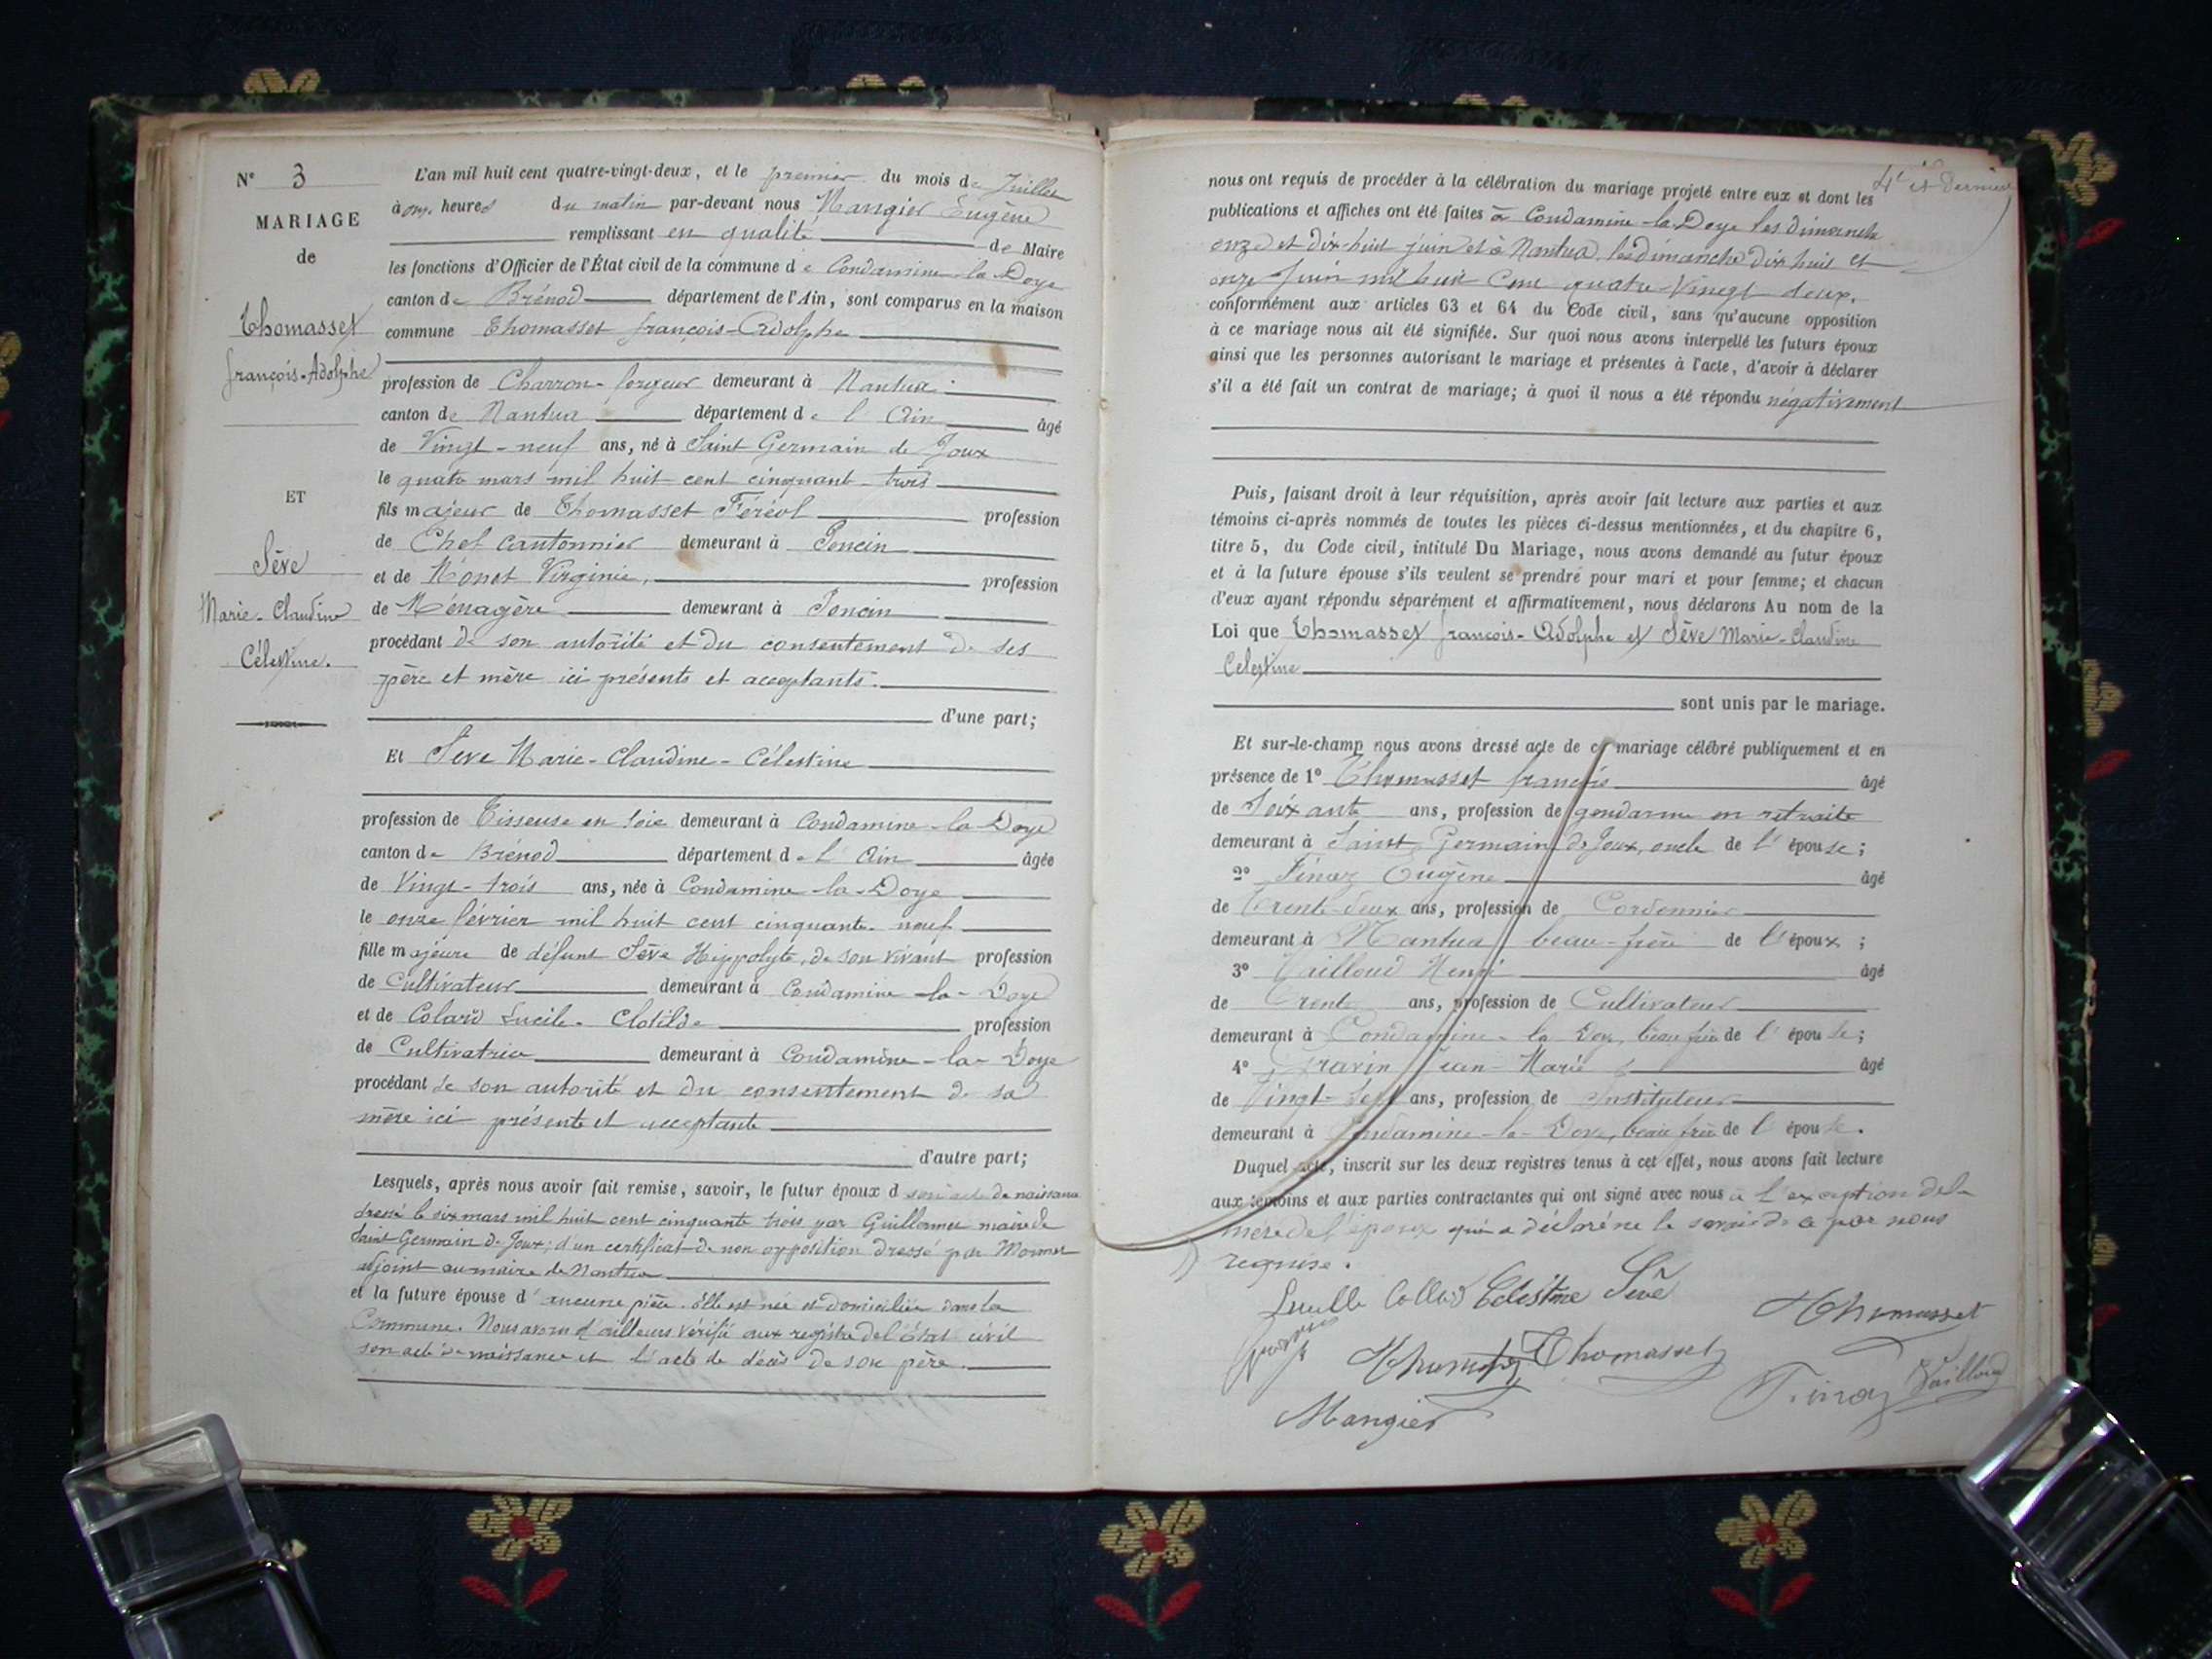 N° 3
MARIAGE
de
Thomasset
François-Adolphe
ET
Sève
Marie-Claudine
Célestine.
L'an mil huit cent quatre-vingt-deux, et le premier du mois de Juillet
à onze heures du matin par-devant nous Mangier Eugène
remplissant en qualité de Maire
les fonctions d'Officier de l'État civil de la commune de Condamine-la-Doye
canton de Brénod département de l'Ain, sont comparus en la maison
commune Thomasset françois-Adolphe
profession de Charron-forgeur demeurant à Nantua
canton de Nantua département de l'Ain âgé
de Vingt-neuf ans, né à Saint Germain de Joux
le quatre mars mil huit cent cinquante-trois
fils majeur de Thomasset Féréol profession
de Chef cantonnier demeurant à Poncin
et de Monet Virginie, profession
de Ménagère demeurant à Poncin
procédant de son autorité et du consentement de ses
père et mère ici présents et acceptants.
d'une part;
Et Seve Marie-Claudine-Célestine
profession de Tisseuse en soie demeurant à Condamine-la-Doye
canton de Brénod département de l'Ain âgée
de Vingt-trois ans, née à Condamine-la-Doye
le onze février mil huit cent cinquante-neuf
fille majeure de défunt Sève Hippolyte, de son vivant profession
de Cultivateur demeurant à Condamine-la-Doye
et de Colard Lucile-Clotilde profession
de Cultivatrice demeurant à Condamine-la-Doye
procédant de son autorité et du consentement de sa
mère ici présente et acceptante
d'autre part;
Lesquels, après nous avoir fait remise, savoir, le futur époux d son acte de naissance
dressé le six mars mil huit cent cinquante trois par Guillermet maire de
Saint Germain de Joux; d'un certificat de non opposition dressé par Monnet
adjoint au maire de Nantua
et la future épouse d'aucune pièce. Elle est née et domiciliée dans la
Commune. Nous avons d'ailleurs vérifié aux registre de l'État civil
son acte de naissance et l'acte de décès de son père.
4e et dernier
nous ont requis de procéder à la célébration du mariage projeté entre eux et dont les
publications et affiches ont été faites à Condamine-la-Doye les dimanche
onze et dix-huit juin et à Nantua les dimanche dix huit et
onze Juin mil huit cent quatre-vingt deux.
conformément aux articles 63 et 64 du Code civil, sans qu'aucune opposition
à ce mariage nous ait été signifiée. Sur quoi nous avons interpellé les futurs époux
ainsi que les personnes autorisant le mariage et présentes à l'acte, d'avoir à déclarer
s'il a été fait un contrat de mariage; à quoi il nous a été répondu négativement
Puis, faisant droit à leur réquisition, après avoir fait lecture aux parties et aux
témoins ci-après nommés de toutes les pièces ci-dessus mentionnées, et du chapitre 6,
titre 5, du Code civil, intitulé Du Mariage, nous avons demandé au futur époux
et à la future épouse s'ils veulent se prendre pour mari et pour femme; et chacun
d'eux ayant répondu séparément et affirmativement, nous déclarons Au nom de la
Loi que Thomasset françois-Adolphe et Sève Marie-Claudine
Celestine
sont unis par le mariage.
Et sur-le-champ nous avons dressé acte de ce mariage célébré publiquement et en
présence de 1° Thomasset françois âgé
de Soixante ans, profession de gendarme en retraite
demeurant à Saint Germain de Joux, oncle de l'épouse;
2° Finaz Eugène âgé
de Trente-deux ans, profession de Cordonnier
demeurant à Nantua beau-frère de l'époux;
3° Vailloud Henri âgé
de Trente ans, profession de Cultivateur
demeurant à Condamine-la Doye, beau frère de l'épouse;
4° Gravin Jean-Marie âgé
de Vingt-sept ans, profession de Instituteur
demeurant à Condamine-la-Doye, beau frère de l'épouse.
Duquel acte, inscrit sur les deux registres tenus à cet effet, nous avons fait lecture
aux témoins et aux parties contractantes qui ont signé avec nous à l'exception de la
mère de l'époux qui a déclaré ne le savoir de ce par nous
requise.
Célestine Sève Thomasset
Thomasset Thomasset
Finaz Vailloud
Mangier